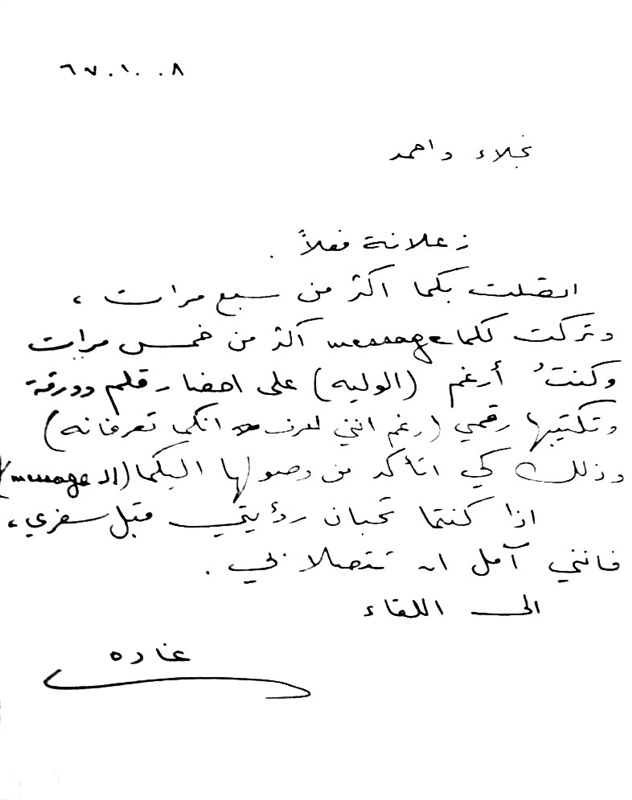 ٦٧.١٠.٨
نجلاء واحمد
زعلانة فعلاً .
اتصلت بكما اكثر من سبع مرات ،
وتركت لكما message اكثر من خمس مرات
وكنتُ أرغم (الوليه) على احضار قلم وورقة
وتكتيبها رقمي (رغم انني اعرف انكما تعرفانه)
وذلك كي اتأكد من وصولها اليكما (الـ message)
اذا كنتما تحبان رؤيتي قبل سفري ،
فانني آمل ان تتصلا بي .
الى اللقاء
غاده